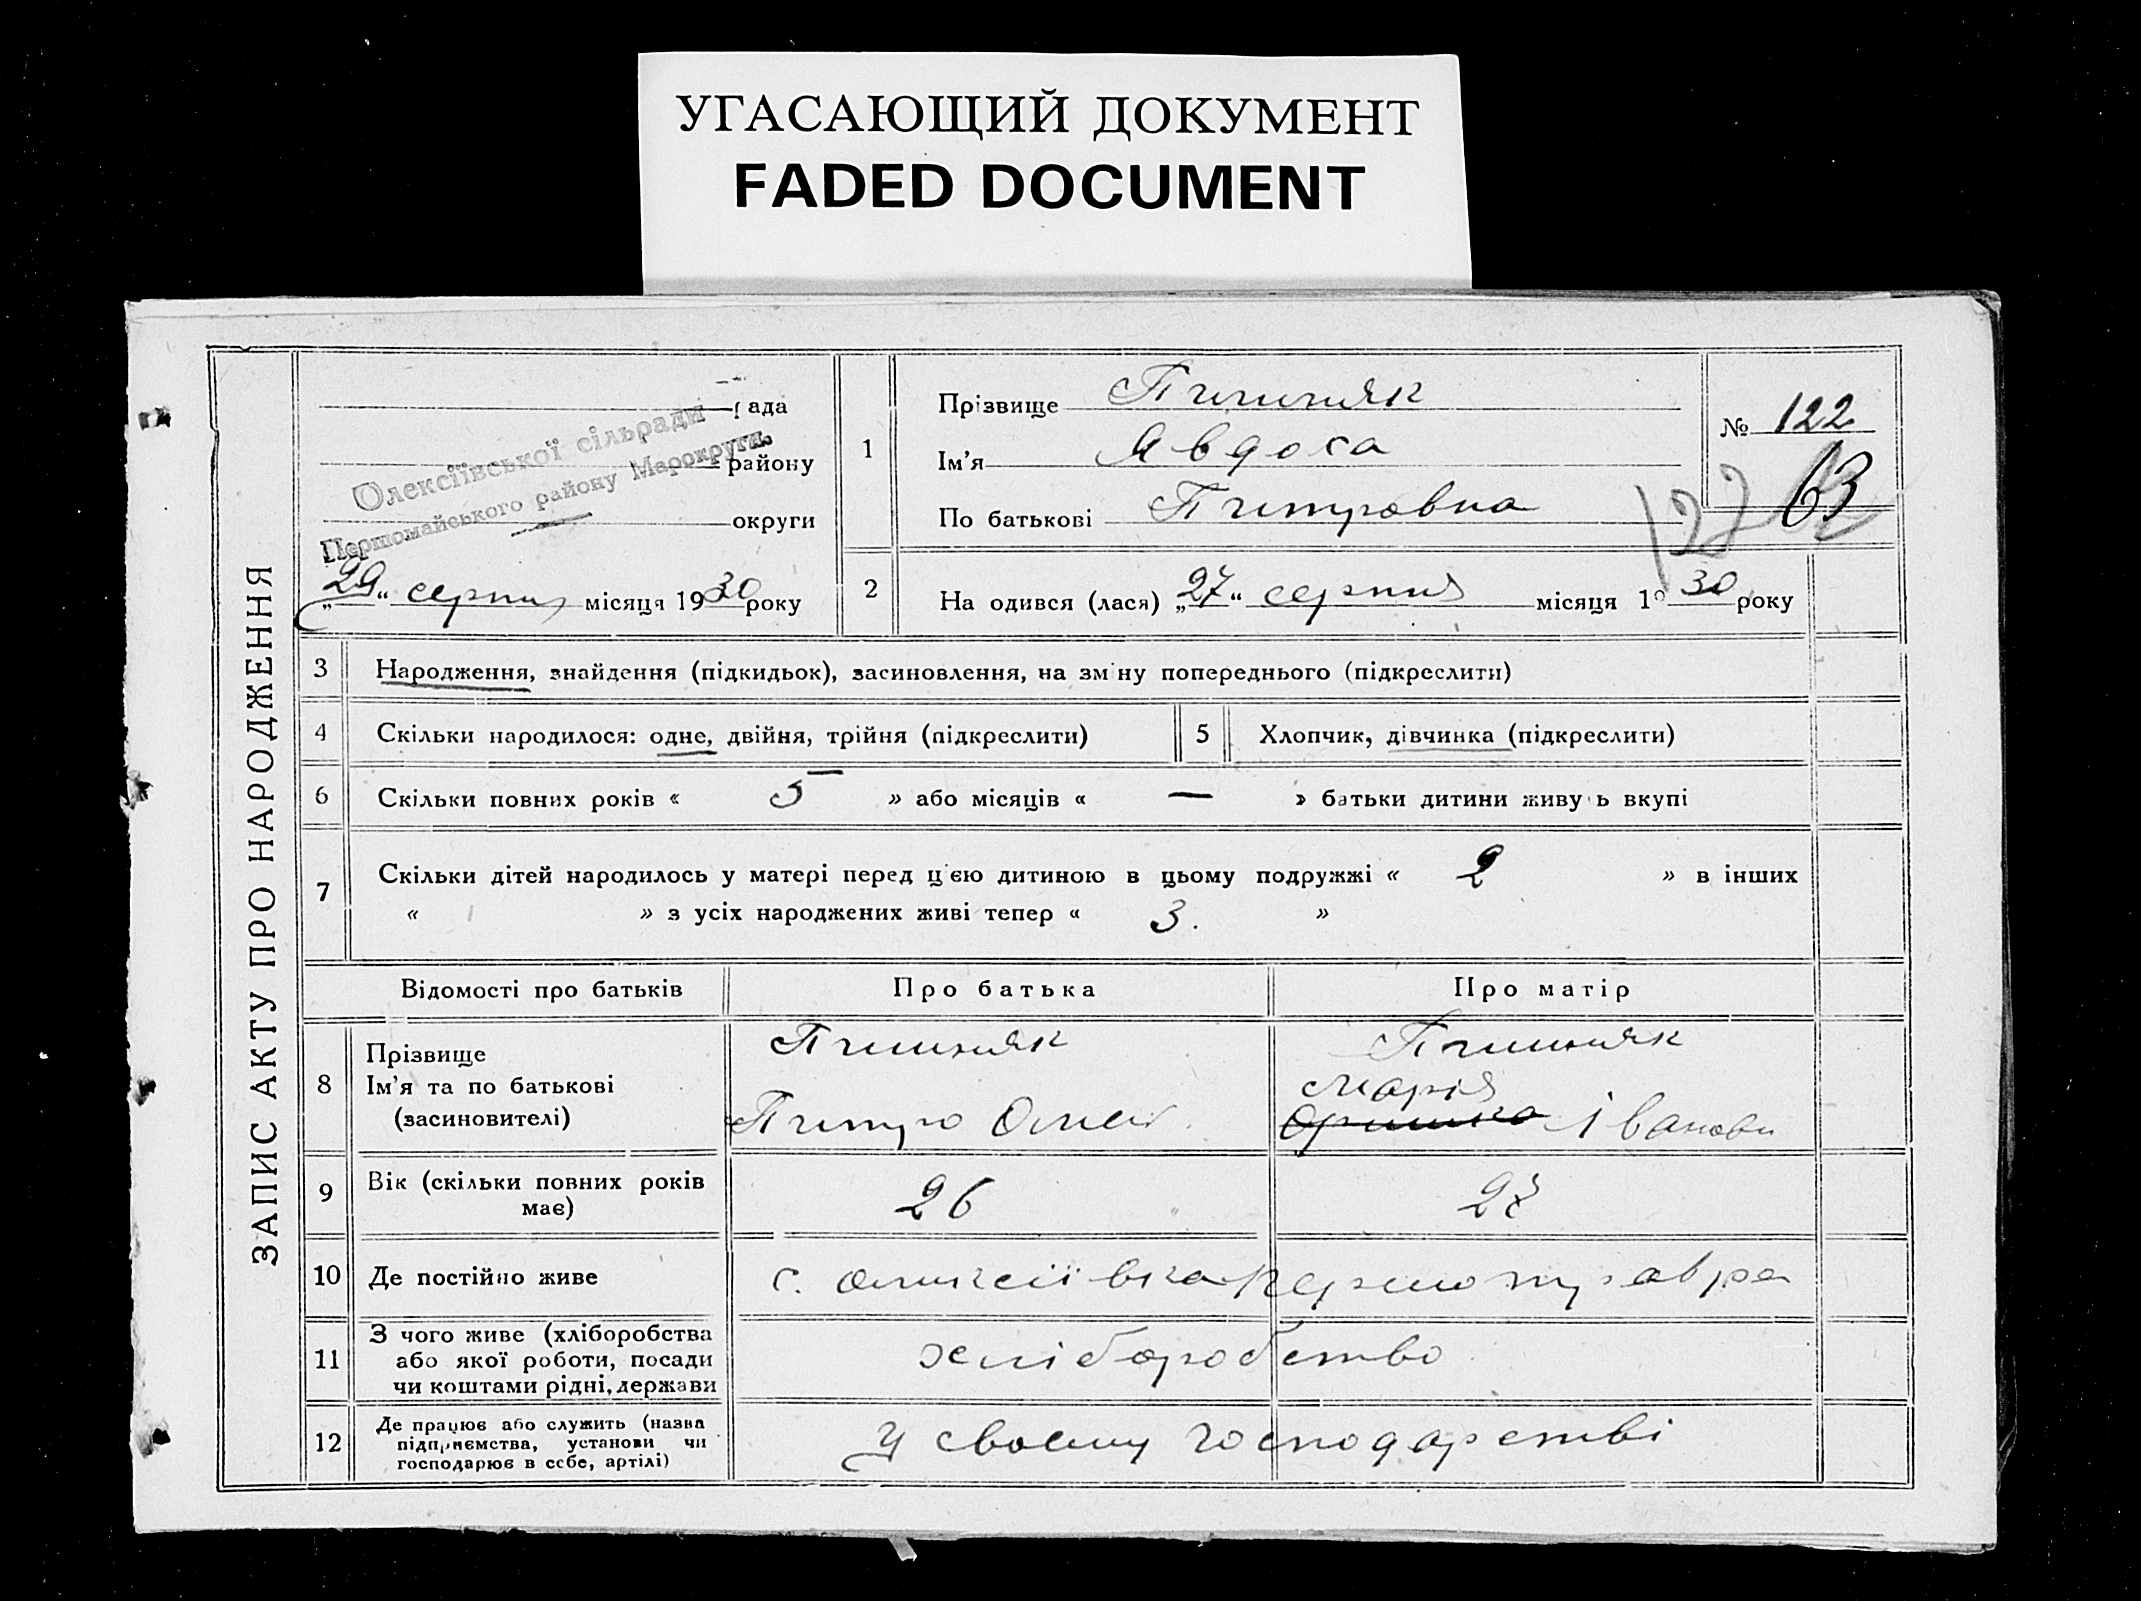 УГАСАЮЩИЙ ДОКУМЕНТ
FADED DOCUMENT
ЗАПИС АКТУ ПРО НАРОДЖЕННЯ
рада
району
округи
Олексіївської сільради
Першомайського району Марокруги.
„29“ серпня місяця 1930 року
1
Прізвище
Ім'я Явдоха
По батькові Питровна
№ 122
63
122
2
На одився (лася) „27“ серпня місяця 1930 року
3 Народження, знайдення (підкидьок), засиновлення, на зм ну попереднього (підкреслити)
4 Скільки народилося: одне, двійня, трійня (підкреслити)
5 Хлопчик, дівчинка (підкреслити)
6 Скільки повних років « 5 » або місяців « — » батьки дитини живу ь вкупі
7 Скільки дітей народилось у матері перед ц єю дитиною в цьому подружжі « 2 » в інших
« » з усіх народжених живі тепер « 3. »
Відомості про батьків Про батька Про матір
8 Прізвище
Ім'я та по батькові Марія
(засиновителі) Питро Іванови
9 Вік (скільки повних років
має) 26
10 Де постійно живе с.
11 З чого живе (хліборобства
або якої роботи, посади
чи коштами рідні, держави
хліборобство
12 Де працює або служить (назва
підприємства, установи чи
господарює в себе, артілі)
У своєму господарстві